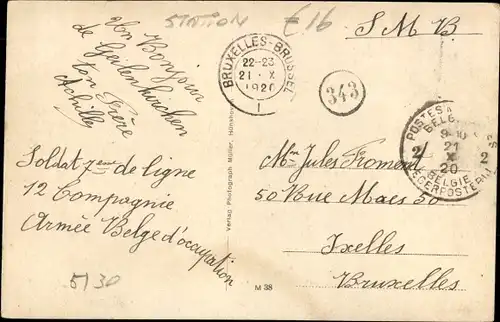 STATION
€16
S.M.B.
Un Bonjour
de Geilenkirchen
ton Frère
Achille
BRUXELLES-BRUSSEL
22-23
21 X
1920
1
343
POSTES
BELG
9-10
21
2 X 2
20
BELGIE
LEGERPOSTERIJ
Soldat 7eme de ligne
12 Compagnie
Armée Belge d'occupation
5130
Verlag Photograph Müller, Hünsho
Mr Jules Froment
50 Rue Maes 50
Ixelles
Bruxelles
M 38